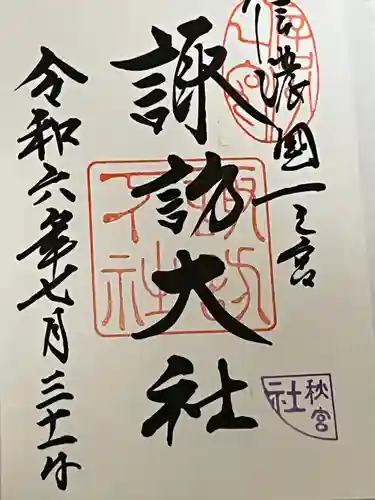 信濃國一之宮
諏訪大社
諏訪大社
秋宮
社
令和六年七月三十一日